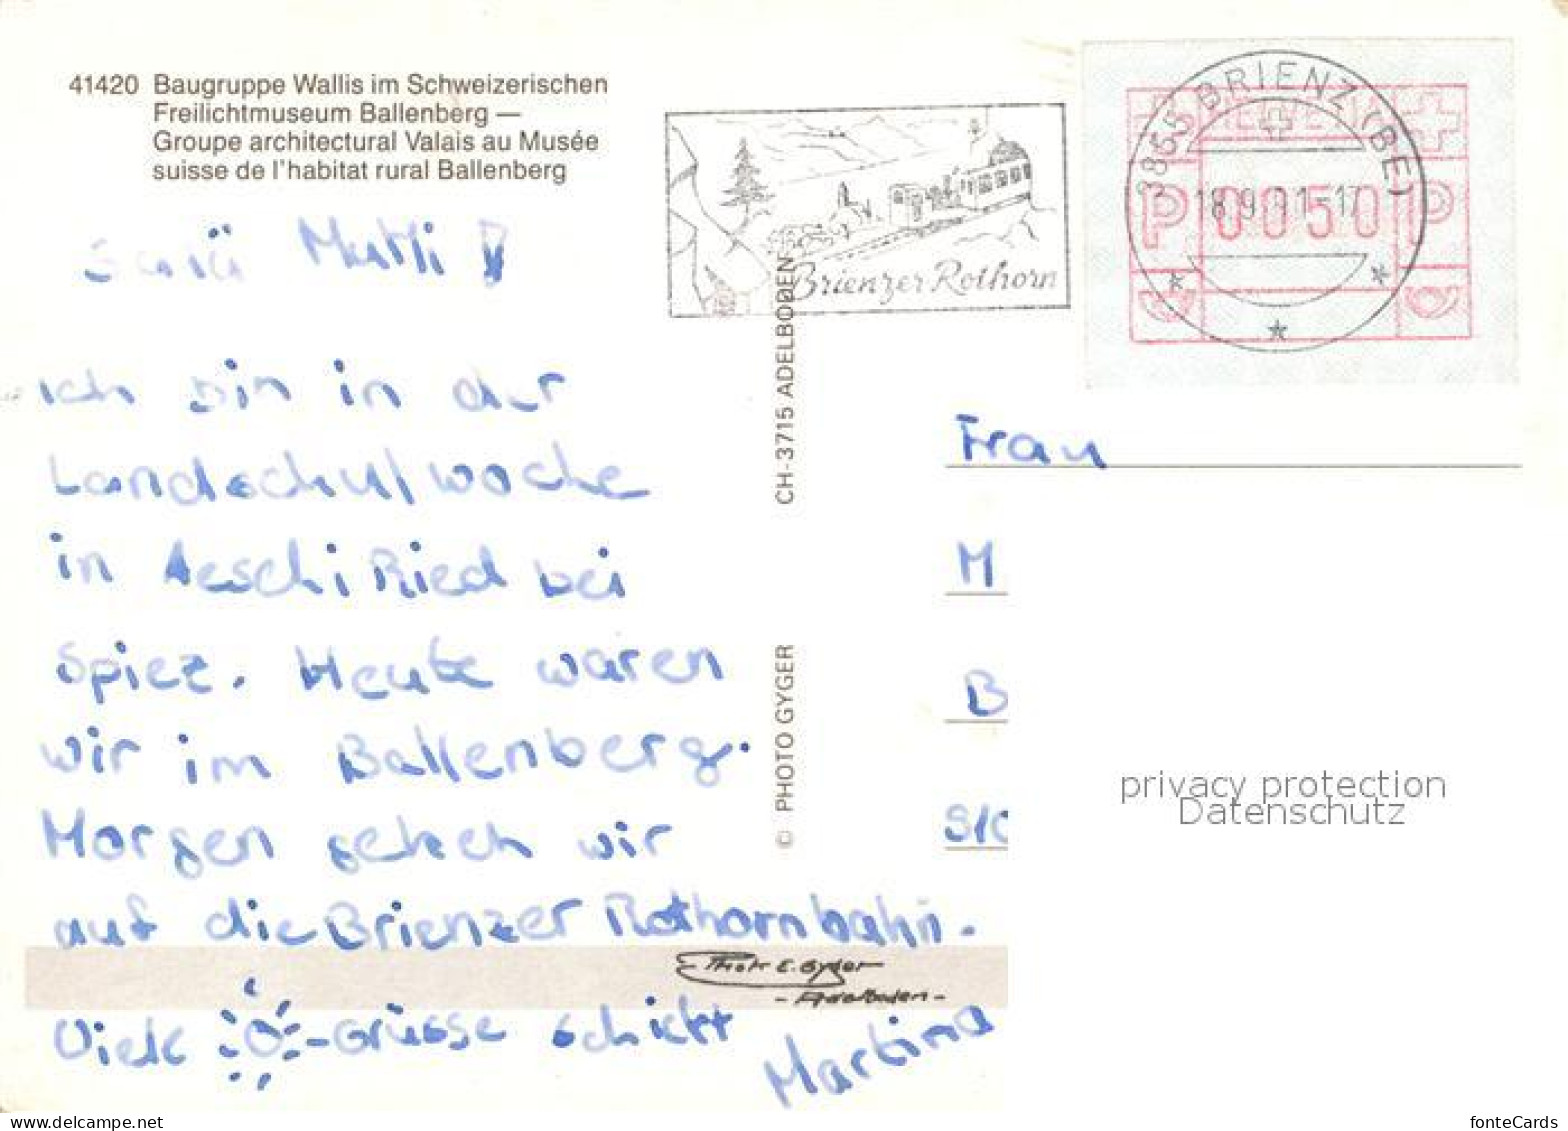 41420 Baugruppe Wallis im Schweizerischen
Freilichtmuseum Ballenberg —
Groupe architectural Valais au Musée
suisse de l'habitat rural Ballenberg
Brienzer Rothorn
3855 BRIENZ (BE)
HELVETIA
P 0050 P
18.9.91-17
Ich bin in der
Landschulwoche
in Aeschi Ried bei
Spiez. Heute waren
wir im Ballenberg.
Morgen gehen wir
auf die Brienzer Rothornbahn.
Viele -Grüsse schickt
Martina
CH-3715 ADELBODEN
© PHOTO GYGER
Phot E. Gyger
- Adelboden -
Frau
M
B
privacy protection
Datenschutz
www.delcampe.net
fonteCards